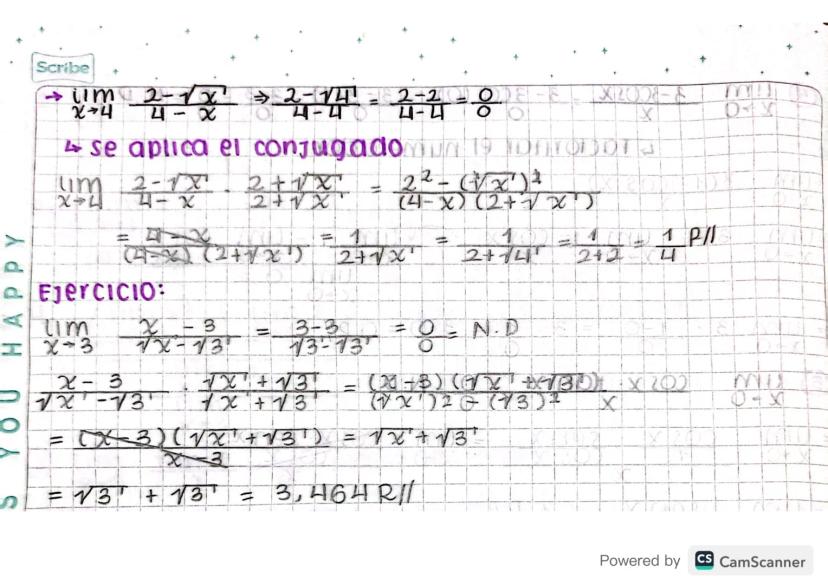 Scribe
→ lim x→4 (2-√x)/(4-x) ⇒ (2-√4)/(4-4) = (2-2)/(4-4) = 0/0
↳ se aplica el conjugado
lim x→4 (2-√x)/(4-x) · (2+√x)/(2+√x) = (2² - (√x)²)/((4-x)(2+√x))
= (4-x)/((4-x)(2+√x)) = 1/(2+√x) = 1/(2+√4) = 1/(2+2) = 1/4 R//
EJercicio:
lim x→3 (x-3)/(√x-√3) = (3-3)/(√3-√3) = 0/0 = N.D
(x-3)/(√x-√3) · (√x+√3)/(√x+√3) = ((x-3)(√x+√3))/((√x)2-(√3)²)
= ((x-3)(√x+√3))/(x-3) = √x+√3
= √3 + √3 = 3,464 R//
S YOU HAPPY
Powered by CS CamScanner